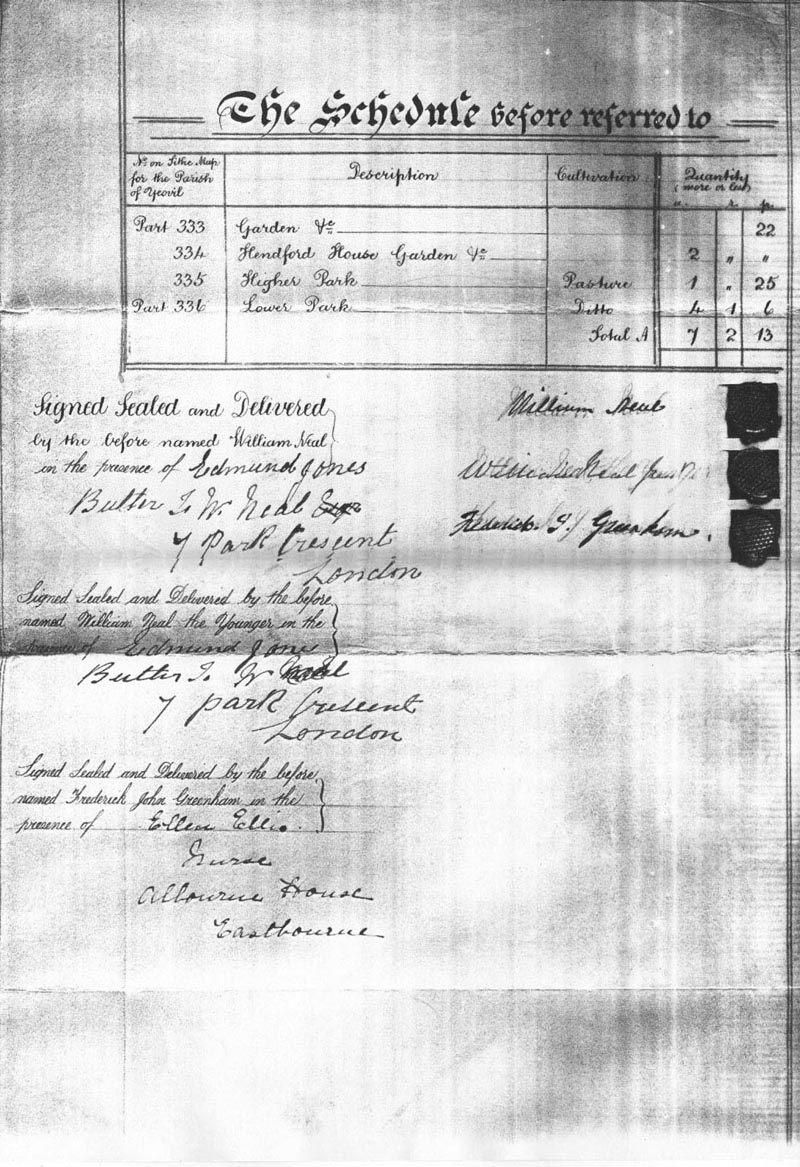 The Schedule before referred to
No on Tithe Map for the Parish of Yeovil | Description | Cultivation | Quantity (more or less)
a. r. p.
Part 333 Garden &c 22
334 Hendford House Garden &c 2 " "
335 Higher Park Pasture 1 " 25
Part 336 Lower Park Ditto 4 1 6
Total A 7 2 13
Signed Sealed and Delivered
by the before named William Neal
in the presence of Edmund Jones
Butler To W. Neal Esqr
7 Park Crescent
London
William Neal
Frederick J. Greenham.
Signed Sealed and Delivered by the before
named William Neal the Younger in the
presence of Edmund Jones
Butler To W Neal
7 Park Crescent
London
Signed Sealed and Delivered by the before
named Frederick John Greenham in the
presence of Ellen Ellis.
Nurse
Albourne House
Eastbourne